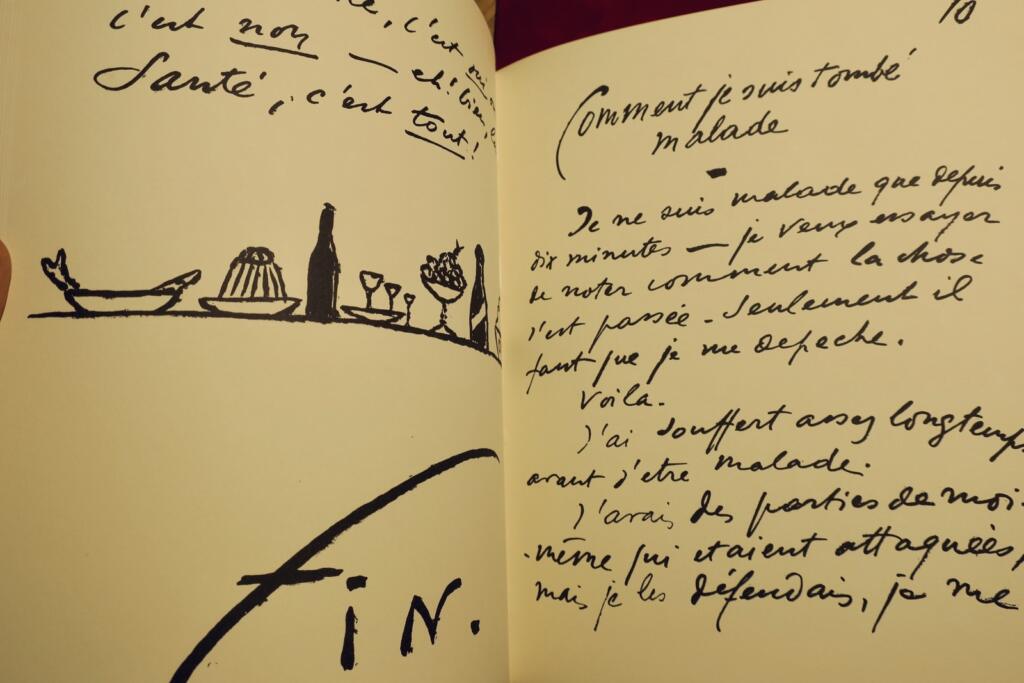 c'est
c'est non — eh! bien,
Santé, c'est tout!
FIN.
10
Comment je suis tombé
malade
—
Je ne suis malade que depuis
dix minutes — je veux essayer
de noter comment la chose
s'est passée. Seulement il
faut que je me depeche.
Voilà.
J'ai souffert assez longtemps
avant d'etre malade.
J'avais des parties de moi-
-même qui etaient attaquées,
mais je les défendais, je me